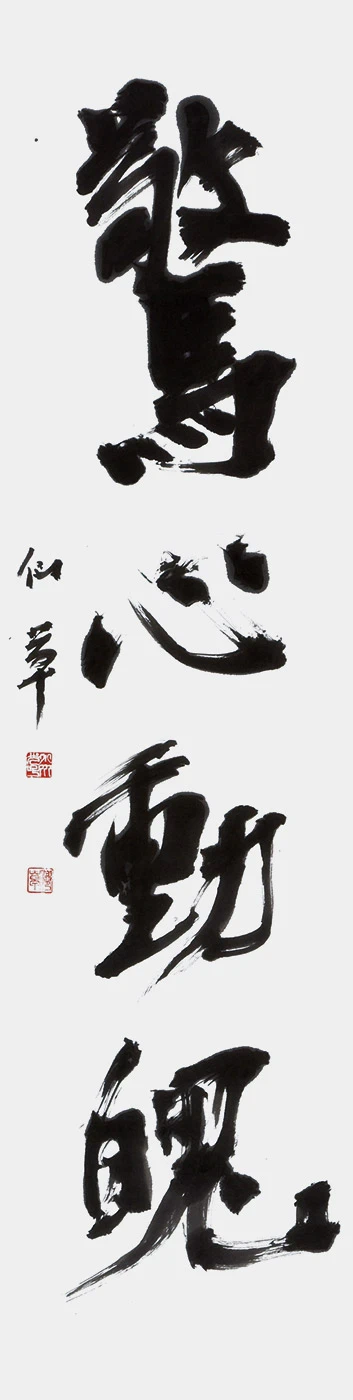 驚心動魄
仙草